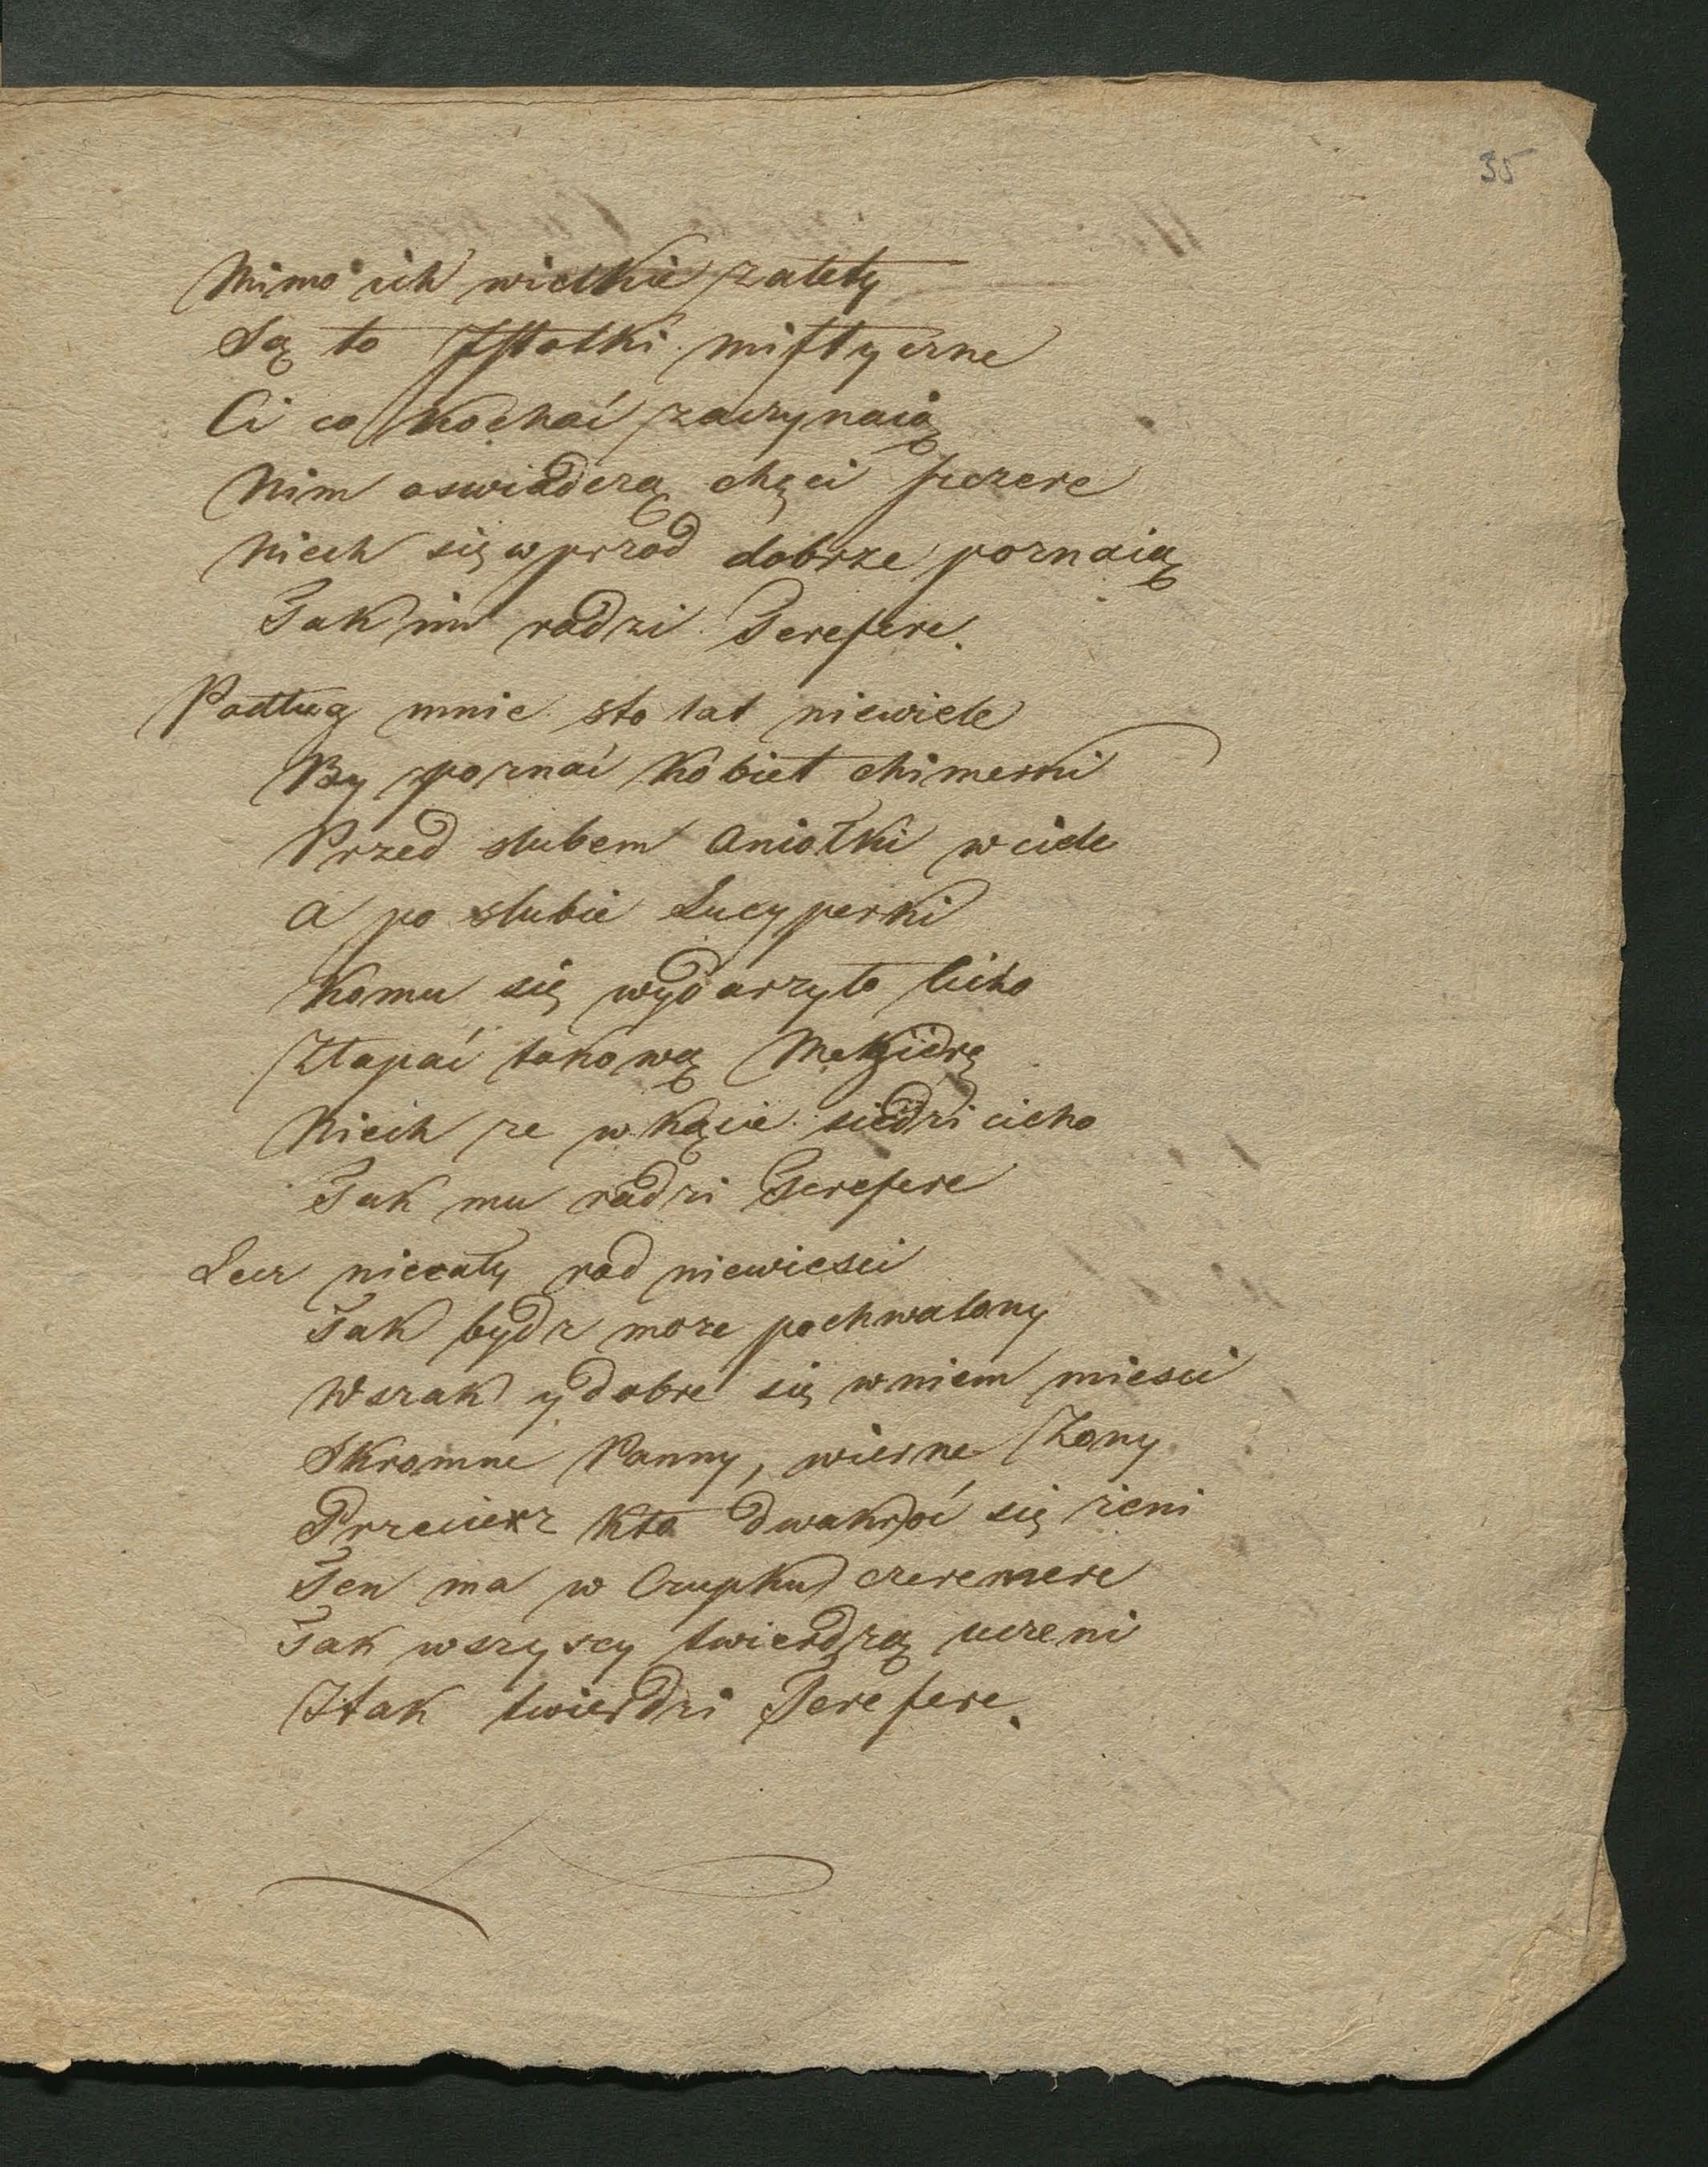 35
Mimo ich wielkie zalety
Są to Istotki mistyczne
Ci co kochać zaczynaią
Nim oswiadczą chęci szczere
Niech się wprzod dobrze poznaią
Tak im radzi Terefere.
Podług mnie sto lat niewiele
By poznać kobiet chimerki
Przed slubem Aniołki w ciele
A po slubie Lucyperki
Komu się wydarzyło licho
Złapać takową
Niech ze w kącie siedzi cicho
Tak mu radzi Terefere
Lecz niecały rod niewiesci
Tak bydz moze pochwalony
Wszak y dobre się wniem miesci
Skromne Panny, wierne Zony
Przeciesz kto dwakroć się zeni
Ten ma w Czupku czeremere
Tak wszyscy twierdzą uczeni
I tak twierdzi Terefere.